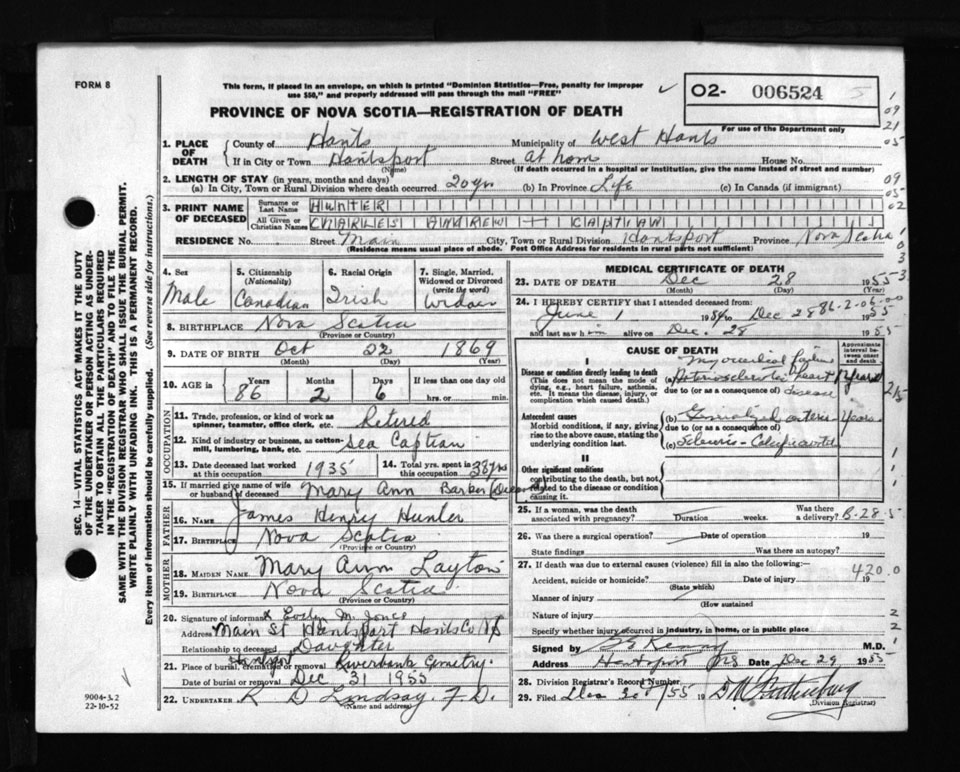 FORM 8
This form, if placed in an envelope, on which is printed "Dominion Statistics—Free, penalty for improper
use $50," and properly addressed will pass through the mail "FREE"
PROVINCE OF NOVA SCOTIA—REGISTRATION OF DEATH
O2- 006524 5
For use of the Department only
1
09
21
05
09
05
02
1. PLACE OF DEATH
County of Hants Municipality of West Hants
If in City or Town Hantsport Street at home House No.
(Name) (If death occurred in a hospital or institution, give the name instead of street and number)
2. LENGTH OF STAY (in years, months and days)
(a) In City, Town or Rural Division where death occurred 20 yrs (b) In Province Life (c) In Canada (if immigrant)
3. PRINT NAME OF DECEASED
Surname or Last Name HUNTER
All Given or Christian Names CHARLES ANDREW H CAPTIAN
RESIDENCE No. Street Main City, Town or Rural Division Hantsport Province Nova Scotia
(Residence means usual place of abode. Post Office Address for residents in rural parts not sufficient)
4. Sex
Male
5. Citizenship (Nationality)
Canadian
6. Racial Origin
Irish
7. Single, Married, Widowed or Divorced (write the word)
8. BIRTHPLACE Nova Scotia
(Province or Country)
9. DATE OF BIRTH Oct 22 1869
(Month) (Day) (Year)
10. AGE is Years 86 Months 2 Days 6 If less than one day old
hrs. or min.
OCCUPATION
11. Trade, profession, or kind of work as
spinner, teamster, office clerk, etc. Retired
12. Kind of industry or business, as cotton-
mill, lumbering, bank, etc. Sea Captian
13. Date deceased last worked
at this occupation 1935
14. Total yrs. spent in
this occupation 38 yrs
15. If married give name of wife
or husband of deceased Mary Ann Barker
FATHER
16. NAME James Henry Hunter
17. BIRTHPLACE Nova Scotia
(Province or Country)
MOTHER
18. MAIDEN NAME Mary Ann Layton
19. BIRTHPLACE Nova Scotia
(Province or Country)
20. Signature of informant x Evelyn M. Jones
Address Main St Hantsport Hants Co NS
Relationship to deceased Daughter
21. Place of burial, cremation or removal Hantsport Riverbank Cemetry.
Date of burial or removal Dec 31 1955
22. UNDERTAKER R D Lindsay F.D.
(Name and address)
MEDICAL CERTIFICATE OF DEATH
23. DATE OF DEATH Dec 28 1955
(Month) (Day)
24. I HEREBY CERTIFY that I attended deceased from:
June 1 1954 to Dec 28 1955
86-2-06-00
and last saw him alive on Dec. 28 1955
CAUSE OF DEATH
Approximate interval between onset and death
I
Myocardial failure
Disease or condition directly leading to death
(This does not mean the mode of dying, e.g., heart failure, asthenia, etc. It means the disease, injury, or complication which caused death.)
(a) heart disease
due to (or as a consequence of)
Antecedent causes
Morbid conditions, if any, giving rise to the above cause, stating the underlying condition last.
(b) Generalized arterio- years
due to (or as a consequence of)
(c)
II
Other significant conditions
contributing to the death, but not related to the disease or condition causing it.
25. If a woman, was the death
associated with pregnancy? Duration weeks. Was there a delivery?
B-28-5
26. Was there a surgical operation? Date of operation 19
State findings Was there an autopsy?
27. If death was due to external causes (violence) fill in also the following:
420.0
Accident, suicide or homicide? Date of injury 19
(State which)
Manner of injury
(How sustained
Nature of injury
Specify whether injury occurred in industry, in home, or in public place
Signed by Kenny M.D.
Address Hantsport NS Date Dec 29 1955
28. Division Registrar's Record Number
29. Filed
(Division Registrar)
SEC. 14—VITAL STATISTICS ACT MAKES IT THE DUTY
OF THE UNDERTAKER OR PERSON ACTING AS UNDER-
TAKER TO OBTAIN ALL THE PARTICULARS REQUIRED
IN THE "REGISTRATION OF DEATH" AND TO FILE THE
SAME WITH THE DIVISION REGISTRAR WHO SHALL ISSUE THE BURIAL PERMIT.
WRITE PLAINLY WITH UNFADING INK. THIS IS A PERMANENT RECORD.
Every item of information should be carefully supplied. (See reverse side for instructions.)
9004-3.2
22-10-52